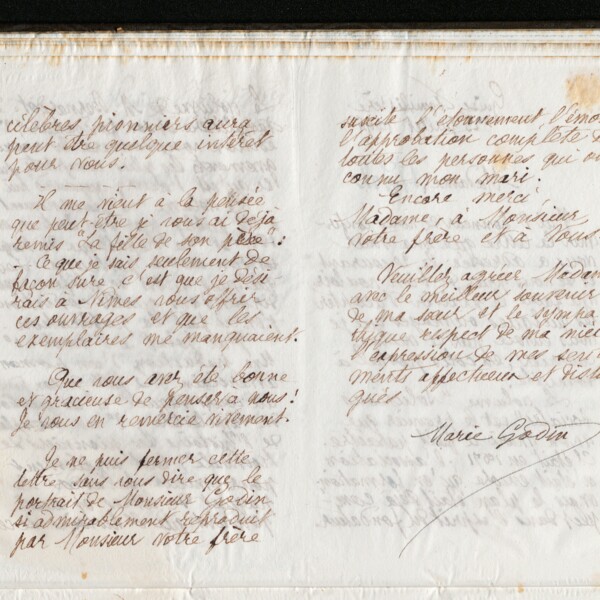 célèbres pionniers aura
peut être quelque intérêt
pour vous.
Il me vient à la pensée
que peut-être je vous ai déjà
remis "La fille de son père":
Ce que je sais seulement de
façon sûre c'est que je dési
rais à Nîmes vous offrir
ces ouvrages et que les
exemplaires me manquaient.
Que vous avez été bonne
et gracieuse de penser à nous!
Je vous en remercie vivement.
Je ne puis fermer cette
lettre sans vous dire que le
portrait de Monsieur Godin
si admirablement reproduit
par Monsieur votre frère
suscite l'étonnement, l'émo
l'approbation complète d
toutes les personnes qui on
connu mon mari.
Encore merci,
Madame, à Monsieur
votre frère et à vous
Veuillez agréer Madam
avec le meilleur souvenir
de ma sœur et le sympa
thique respect de ma niè
l'expression de mes sen
ments affectueux et disti
gués
Marie Godin